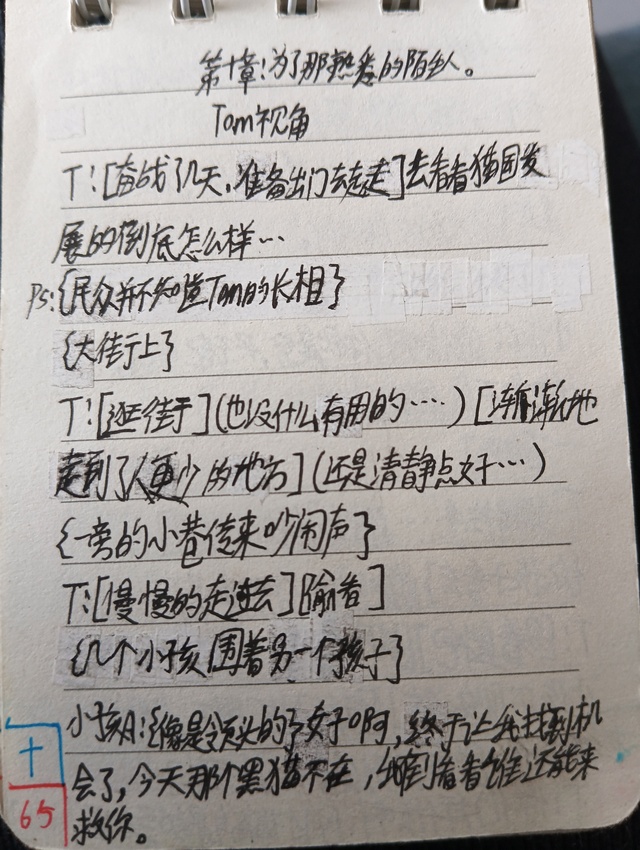 第十章:为了那熟悉的陌生人。
Tom视角
T:[奋战了几天,准备出门去走走]去看看猫国发
展的到底怎么样…
Ps:{民众并不知道Tom的长相}
{大街上}
T:[逛街](也没什么有用的……)[渐渐地
走到了人更少的地方](还是清静点好…)
{一旁的小巷传来吵闹声}
T:[慢慢的走过去][偷看]
{几个小孩围着另一个孩子}
小孩A:{像是领头的}好啊,终于让我找到机
会了,今天那个黑猫不在,我倒看看谁还能来
救你。
十
65